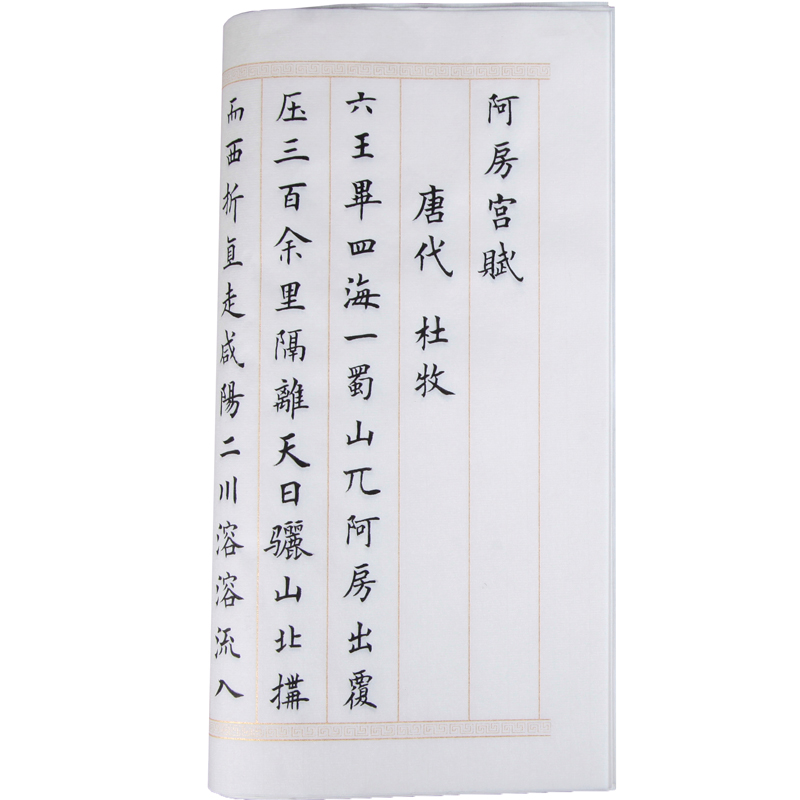 阿房宫赋
唐代 杜牧
六王畢四海一蜀山兀阿房出覆
压三百余里隔離天日骊山北搆
而西折直走咸陽二川溶溶流入